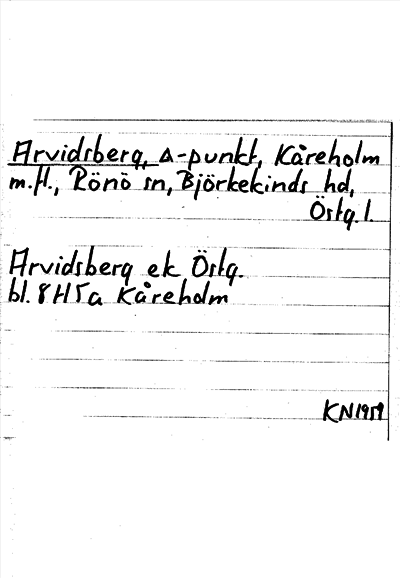 Arvidsberg, Δ-punkt, Kåreholm
m.fl., Rönö sn, Björkekinds hd,
Östg. l.
Arvidsberg ek Östg.
bl. 8H5a Kåreholm
KN 1959